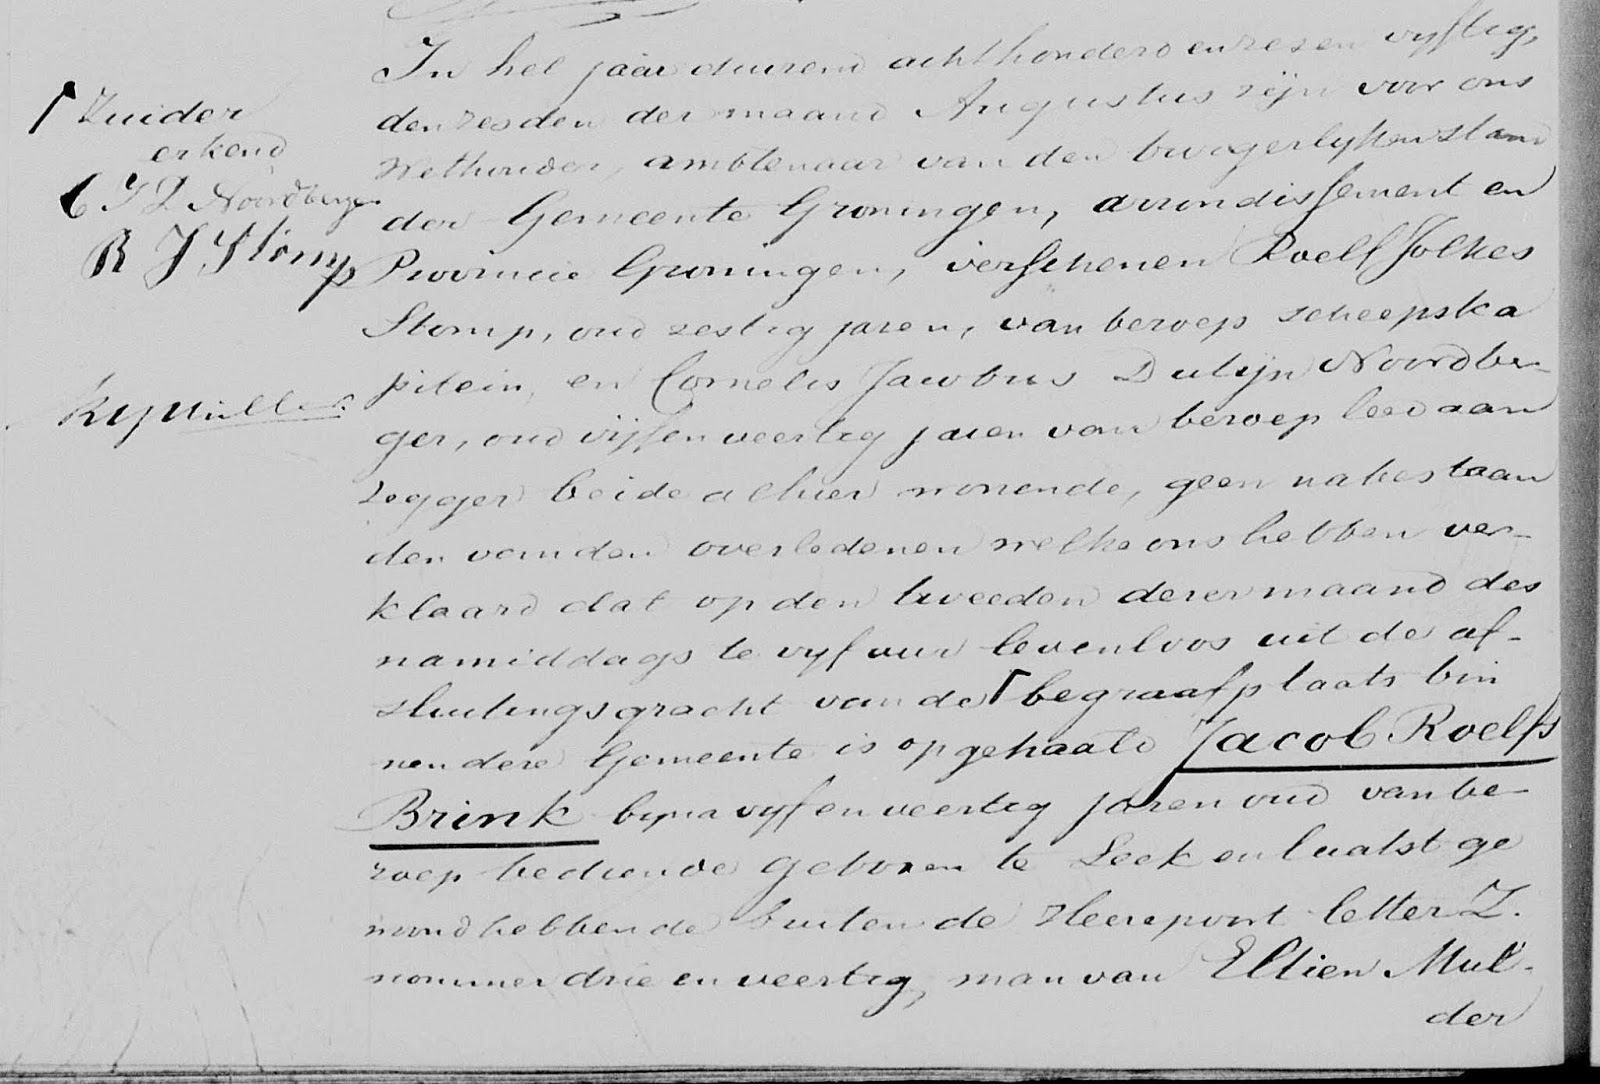 In het jaar duizend achthonderd en zes en vyftig,
den zesden der maand Augustus zijn voor ons
Wethouder, ambtenaar van den burgerlyken stand
der Gemeente Groningen, arrondissement en
Provincie Groningen, verschenen Roelf Jolkes
Stomp, oud zestig jaren, van beroep scheepska
pitein, en Cornelis Jacobus Dutijn Noordber-
ger, oud vijf en veertig jaren van beroep leed aan
zegger beide alhier wonende, geen nabestaan
den van den overledenen welke ons hebben ver-
klaard dat op den tweeden dezer maand des
namiddags te vyf uur levenloos uit de af-
sluitingsgracht van de ↑ begraafplaats bin
nen deze Gemeente is opgehaald Jacob Roelfs
Brink byna vyf en veertig jaren oud van be-
roep bediende geboren te Leek en laatst ge
woond hebbende buiten de Heerepoort letter Z.
nommer drie en veertig, man van Eltien Mul-
der
↑ Zuider
erkend
C J D Noordberger
R J Stomp